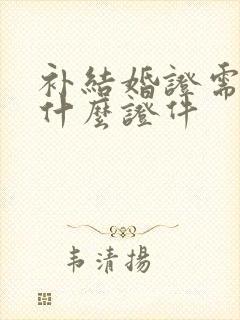 补結婚證需
什麼證件
韦清揚